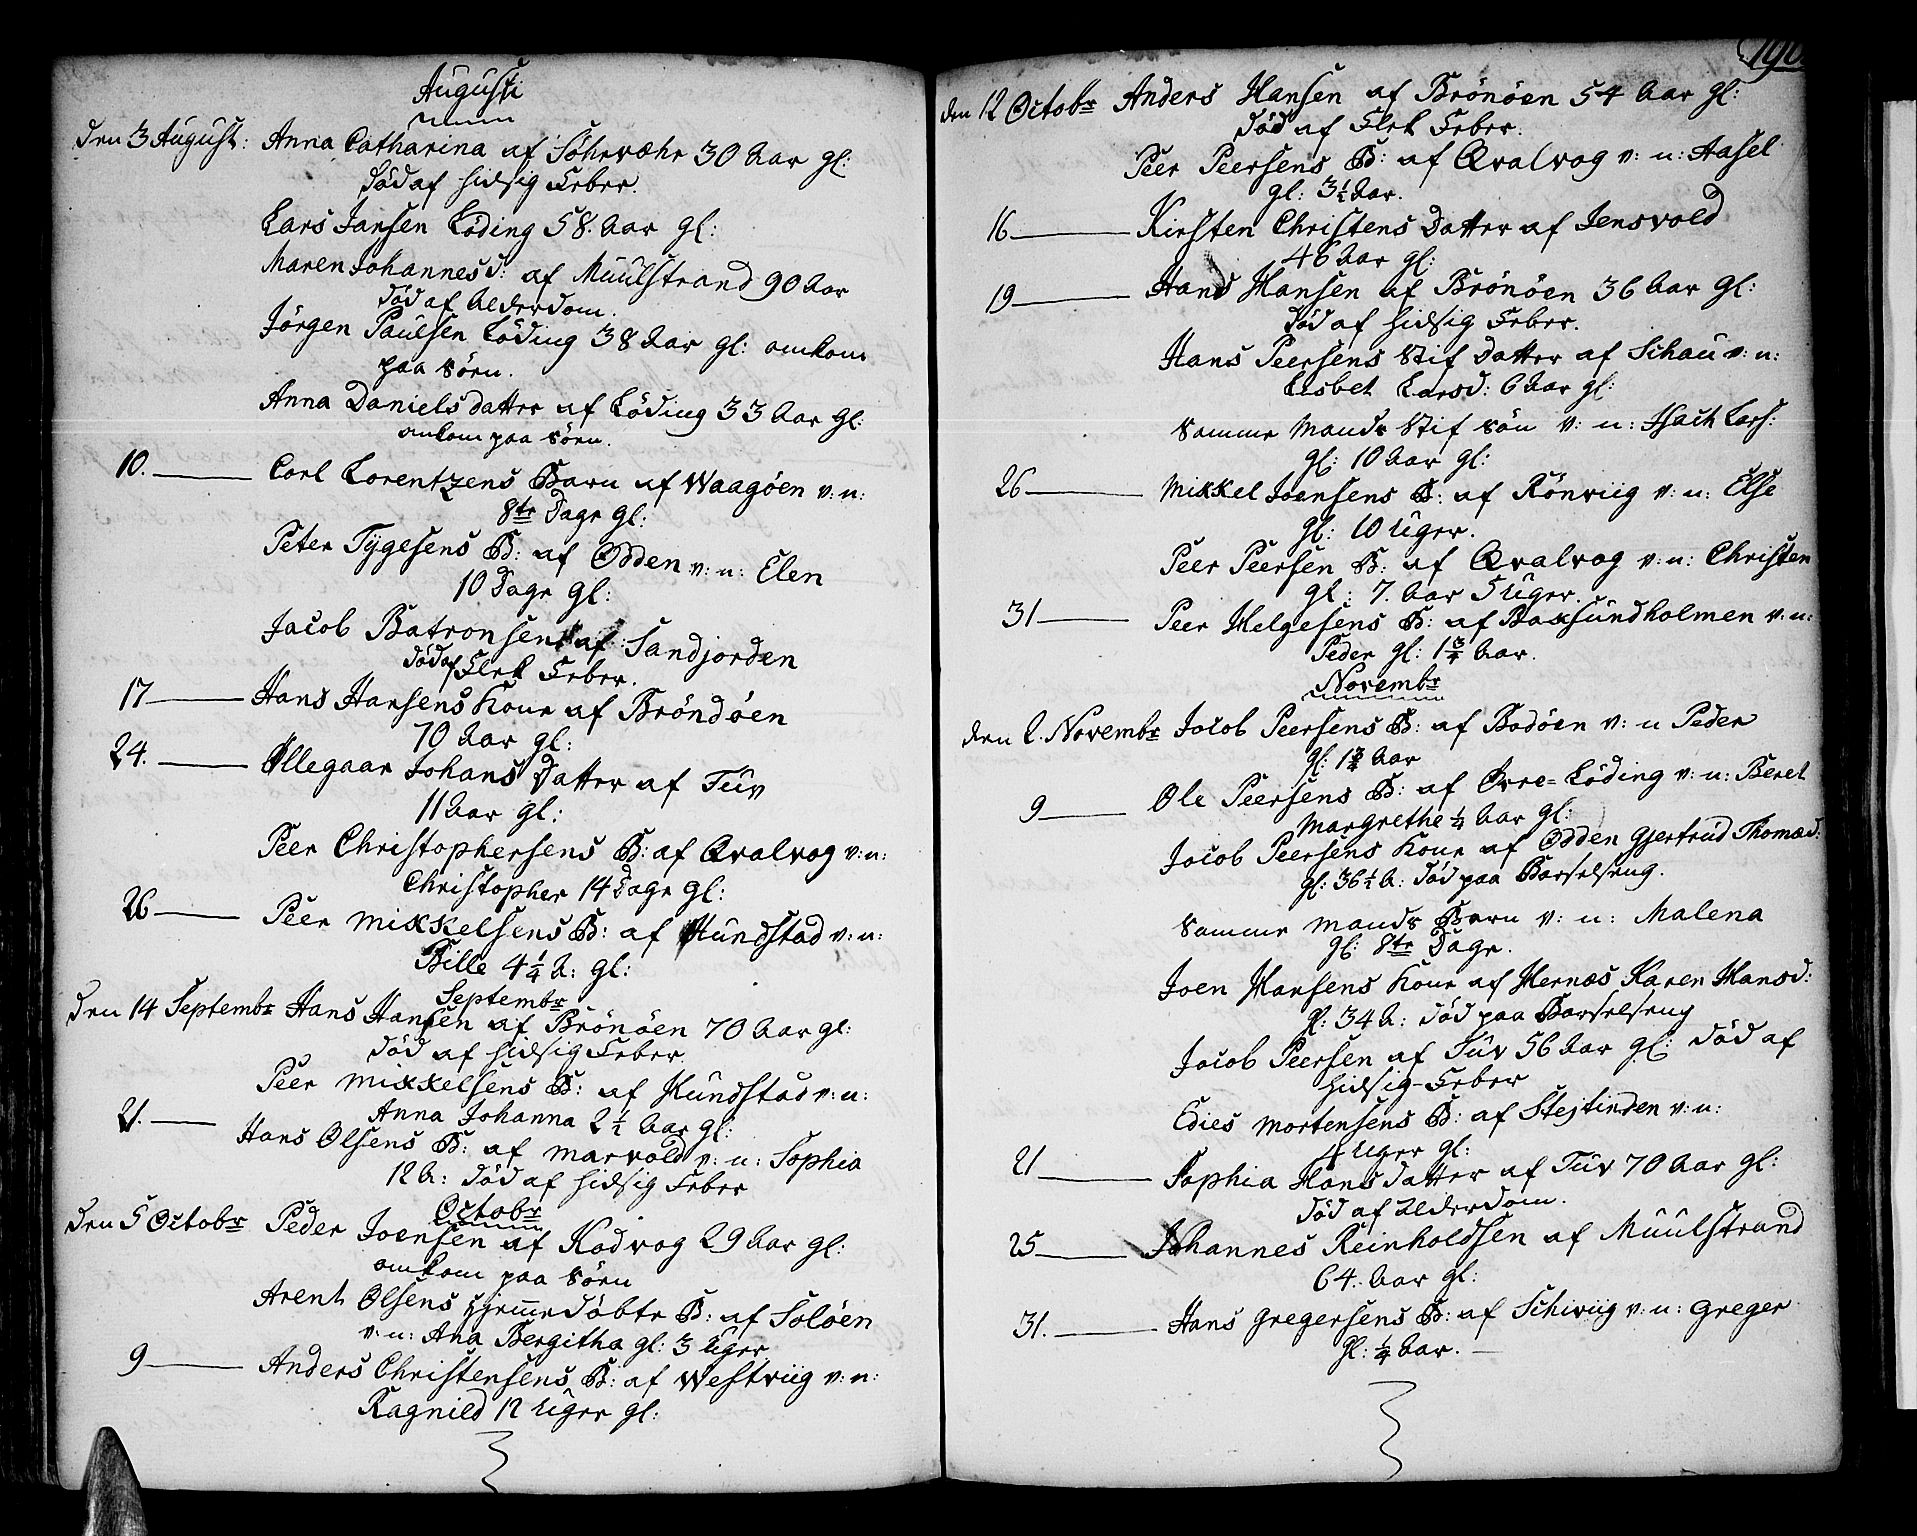 Augusti
den 3 August: Anna Catharina af Söhrvæhr 30 Aar gl:
död af hidsig Feber.
Lars Jansen Löding 58. Aar gl:
Maren Johannesd: af Muulstrand 90 Aar
död af Alderdom.
Jörgen Paulsen Löding 38 Aar gl: omkom
paa söen.
Anna Danielsdatter af Löding 33 Aar gl:
omkom paa söen.
10. Carl Lorentzens Barn af Waagöen v: n:
8te Dage gl:
Peter Tygesens B: af Odden v: n: Elen
10 Dage gl:
Jacob Batronsen af Sandjorden
död af Flek Feber.
17 Hans Hansens Kone af Bröndöen
70 Aar gl:
24. Ollegaar Johans Datter af Tuv
11 Aar gl:
Peer Christophersens B: af Qvalvog v: n:
Christopher 14 Dage gl:
26 Peer Mikkelsens B: af Hundstad v: n:
Bille 4 1/4 A: gl:
Septembr
den 14 Septembr Hans Hansen af Brönöen 70 Aar gl:
död af hidsig Feber.
Peer Mikkelsens B: af Hundstad v: n:
Anna Johanna 2 1/2 Aar gl:
21. Hans Olsens B: af Marvold v: n: Sophia
12 A: död af hidsig Feber
Octobr
den 5 Octobr Peder Joensen af Kodvog 29 Aar gl:
omkom paa söen
Arent Olsens hjemedöbte B: af Solöen
v: n: Ana Bergitha gl: 3 Uger
9 Anders Christensens B: af Westviig v: n:
Ragnild 12 Uger gl:
190
den 12 Octobr Anders Hansen af Brönöen 54 Aar gl:
död af Flek Feber.
Peer Peersens B: af Qvalvog v: n: Aasel
gl: 3 1/2 Aar.
16 Kirsten Christens Datter af Jensvold
46 Aar gl:
19 Hans Hansen af Brönöen 36 Aar gl:
död af hidsig Feber.
Hans Peersens Stif Datter af Schau v: n:
Lisbet Larsd: 6 Aar gl:
Samme Mands Stif Sön v: n: Isach Lars:
gl: 10 Aar gl:
26 Mikkel Joensens B: af Rönviig v: n: Else
gl: 10 Uger.
Peer Peersen B: af Qvalvog v: n: Christen
gl: 7. Aar 5 Uger.
31 Peer Helgesens B: af Baxsundholmen v: n:
Peder gl: 1 3/4 Aar.
Novembr
den 2. Novembr Jacob Peersens B: af Bodöen v: n Peder
gl: 1 3/4 Aar
9 Ole Peersens B: af Övre=Löding v: n: Beret
Margrethe 1/4 Aar gl:
Jacob Peersens Kone af Odden Gjertrud Thomæd:
gl: 36 1/2 A: död paa Barselseng.
Samme Mands Barn v: n: Malena
gl: 8te Dage.
Joen Hansens Kone af Hernæs Karen Hansd:
gl: 34 A: död paa Barselseng
Jacob Peersen af Tuv 56 Aar gl: död af
hidsig-Feber
Edies Mortensens B: af Stegtinden v: n:
4 Uger gl:
21 Sophia Hansdatter af Tuv 70 Aar gl:
död af Alderdom.
25 Johannes Reinholdsen af Muulstrand
64. Aar gl:
31. Hans Gregersens B: af Schiviig v: n: Greger
gl: 1/4 Aar.